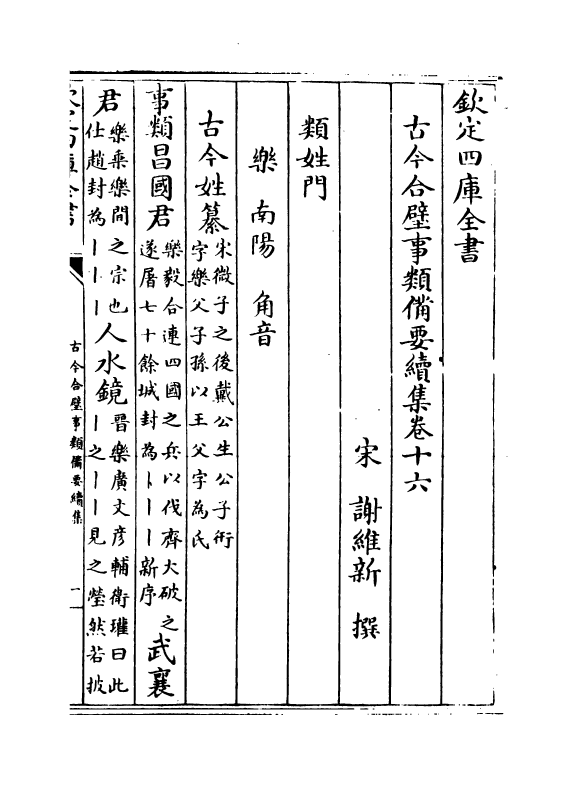 欽定四庫全書
古今合璧事類備要續集卷十六
宋　謝維新　撰
類姓門
樂　南陽　角音
古今姓纂宋微子之後戴公生公子術字樂父子孫以王父字為氏
事類昌國君樂毅合連四國之兵以伐齊大破之遂屠七十餘城封為丨丨丨新序武襄
君樂乗樂間之宗也仕趙封為丨丨丨人水鏡晋樂廣丈彦輔衛瓘曰此丨之丨丨見之瑩然若披
古今合璧事類備要續集
一